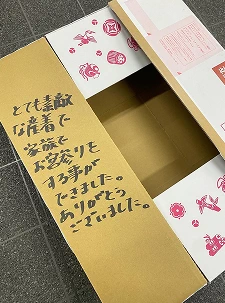 とても素敵
な産着で
家族で
お宮参りも
する事が
できました。
ありがとう
ございました。